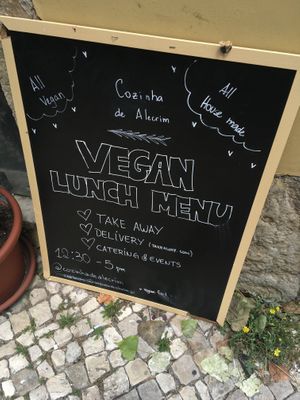 All
Vegan
Cozinha
de Alecrim
All
House made
VEGAN
LUNCH MENU
TAKE AWAY
DELIVERY (TAKEAWAY.COM)
CATERING & EVENTS
12:30 - 5 pm
@cozinhadealecrim